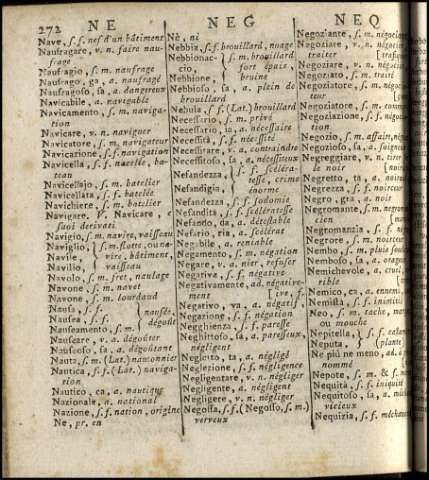 272 NE NEG NEQ
Nave, s.f. nef d'un bâtiment
Naufragare, v. n. faire nau-
frage
Naufragio, s. m. naufrage
Naufrago, ga, a. naufragé
Naufragoso, sa, a. dangereux
Navicabile, a. navigable
Navicamento, s. m. naviga-
tion
Navicare, v. n. naviguer
Navicatore, s. m. navigateur
Navicazione, s.f. navigation
Navicella, s.f. nacelle, ba-
teau
Navicellajo, s.m. batelier
Navicellata, s.f. batelée
Navichiere, s. m. batelier
Navigare, V. Navicare, e
suoi derivati
Navigio, s.m. navire, vaisseau
Naviglio, s.m. flotte, ou na-
Navile, vire, bâtiment,
Navilio, vaisseau
Navolo, s.m. fret, naulage
Navone, s.m. navet
Navone, s.m. lourdaud
Nausa, s.f. nausée,
Nausea, s.f. dégoût
Nauseamento, s.m.
Nauseare, v. a. dégoûter
Nauseoso, sa, a. dégoûtant
Nauta, s.m. (Lat.) nautonnier
Nautica, s.f. (Lat.) naviga-
tion
Nautico, ca, a. nautique
Nazionale, a. national
Nazione, s.f. nation, origine
Ne, pr. en
Nè, ni
Nebbia, s.f. brouillard, nuage
Nebbionac- s.m. brouillard
cio, fort épais
Nebbione, bruine
Nebbioso, sa, a. plein de
brouillard
Nebula, s.f. (Lat.) brouillard
Necessario, s. m. privé
Necessario, ia, a. nécessaire
Necessità, s.f. nécessité
Necessitare, v. a. contraindre
Necessitoso, sa, a. nécessiteux
Nefandezza, s.f. scéléra-
tesse, crime
Nefandigia, énorme
Nefandezza, s.f. sodomie
Nefandità, s.f. scélératesse
Nefando, da, a. détestable
Nefario, ria, a. scélérat
Negabile, a. reniable
Negamento, s. m. négation
Negare, v. a. nier, refuser
Negativa, s. f. négative
Negativamente, ad. négative-
ment
Negativo, va, a. négatif,
Negazione, s.f. négation [ive, f.
Negghienza, s.f. paresse
Neghittoso, sa, a. paresseux,
négligent
Negletto, ta, a. négligé
Neglezione, s.f. négligence
Negligentare, v. n. négliger
Negligente, a. négligent
Negligere, v. n. négliger
Negossa, s.f. (Negosso, s.m.)
verveux
Negoziante, s. m.
Negoziare, v. n.
traiter
Negoziato, s.m. traité
Negoziatore, s. m.
teur
Negoziatore, s.m.
Negoziazione, s.f.
tion
Negozio, s.m. affaire,
Negozioso, sa, a.
Negreggiare, v. n. tirer
le noir
Negretto, ta, a.
Negrezza, s.f. noirceur
Negro, gra, a. noir
Negromante, s.m.
cien
Negromanzia, s.f.
Negrore, s.m. noirceur
Nembo, s. m. pluie
Nemboso, sa, a. orageux
Nemichevole, a.
rible
Nemico, ca, a. ennemi
Nemistà, s.f. inimitié
Neo, s. m. tache,
ou mouche
Nepitella, s.f.
Neputa, (plante)
Ne più ne meno, ad.
nommé
Nepote, s.m. & f.
Nequità, s.f. iniquité
Nequitoso, sa, a.
vicieux
Nequizia, s.f. méchanceté